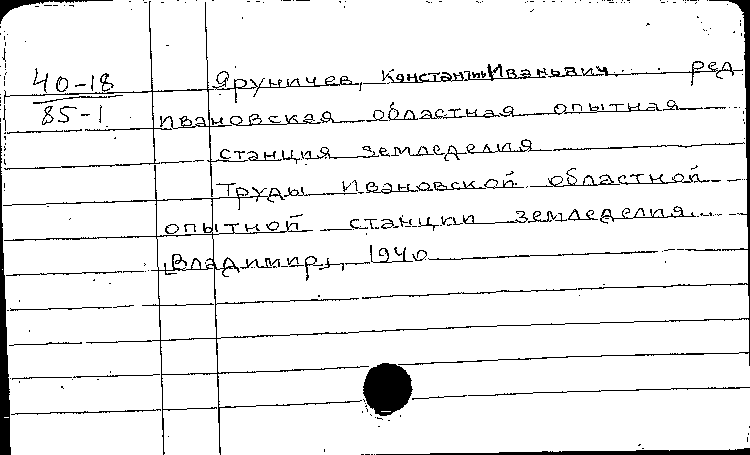 40-18
85-1
Яруничев, Константин Иванович, ред
Ивановская областная опытная
станция земледелия
Труды Ивановской областной
опытной станции земледелия...
[Владимир], 1940